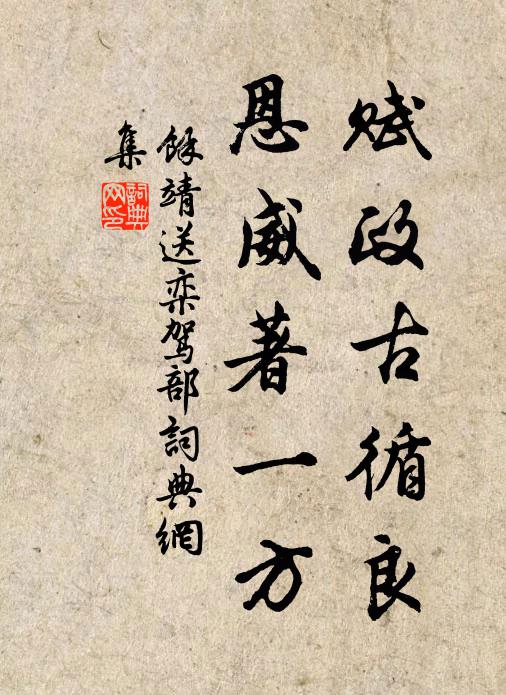 赋政古循良
恩威著一方
餘靖送栾驾部詞典網
集
詞典
网印